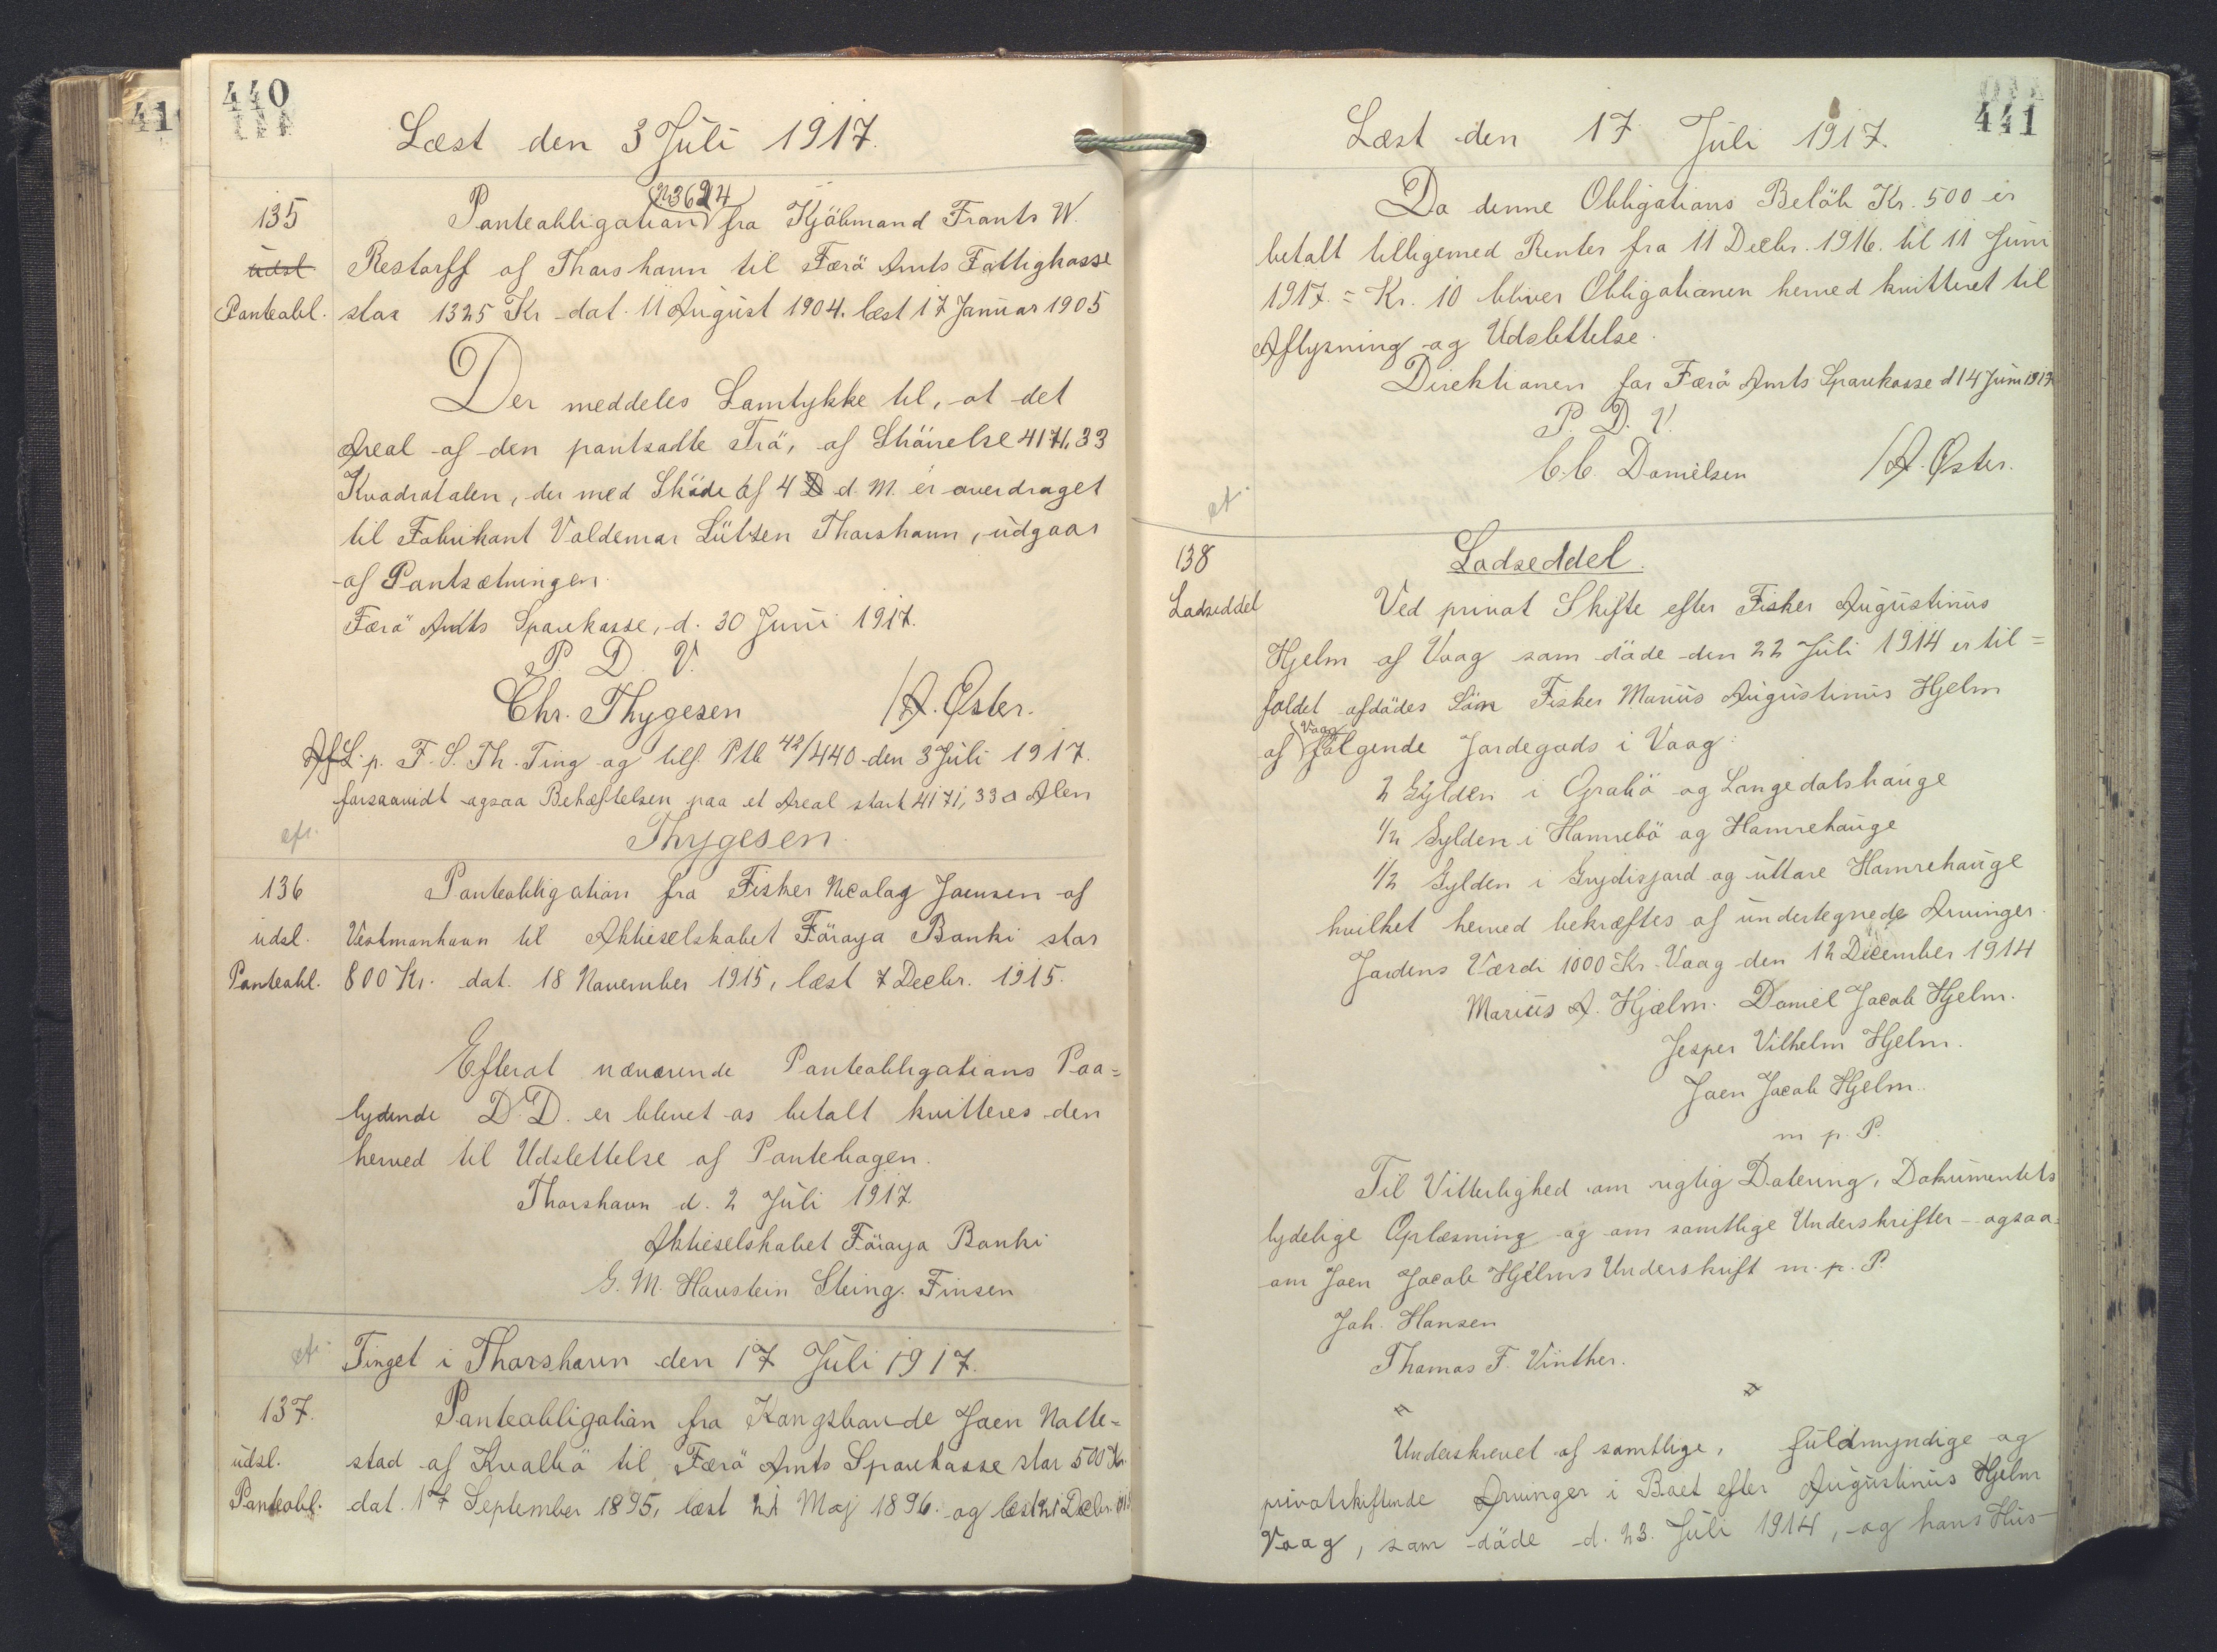 440
Læst den 3 Juli 1917.
135
N. 3624
Panteobligation fra Kjöbmand Frants W.
udsl.
Restorff af Thorshavn til Færö Amts Fattigkasse
Panteobl.
stor 1325 Kr dat. 11 August 1904. læst 17 Januar 1905
Der meddeles Samtykke til, at det
Areal af den pantsatte Trö, af Störrelse 4171,33
Kvadratalen, der med Sköde af 4 d. M. er overdraget
til Fabrikant Valdemar Lützen Thorshavn, udgaar
af Pantsætningen.
Færö Amts Sparekasse, d. 30 Juni 1917.
P. D. V.
Chr. Thygesen /A. Øster.
Afl. p. F. S. Th. Ting og tilf. Ptb 42/440 den 3 Juli 1917.
forsaavidt ogsaa Behæftelsen paa et Areal stort 4171,33 □ Alen
Thygesen.
136
Panteobligation fra Fisker Nicolaj Joensen af
udsl.
Vestmanhavn til Aktieselskabet Föroya Banki stor
Panteobl.
800 Kr. dat. 18 November 1915, læst 7 Decbr. 1915.
Efterat nærværende Panteobligations Paa=
lydende D. D. er blevet os betalt kvitteres den
herved til Udslettelse af Pantebogen.
Thorshavn d. 2 Juli 1917
Aktieselskabet Föroya Banki
G. M. Havstein Steing. Finsen
Tinget i Thorshavn den 17 Juli 1917.
137.
Panteobligation fra Kongsbonde Joen Nolte=
udsl.
stad af Kvalbö til Færö Amts Sparekasse stor 500 Kr.
Panteobl.
dat. 17 September 1895, læst 21 Maj 1896. og læst 21 Decbr.
441
Læst den 17 Juli 1917.
Da denne Obligations Belöb Kr. 500 er
betalt tilligemed Renter fra 11 Decbr. 1916. til 11 Juni
1917. = Kr. 10 bliver Obligationen herved kvitteret til
Aflysning og Udslettelse.
Direktionen for Færö Amts Sparekasse d 14 Juni 1917
P. D. V.
C. C. Danielsen /A. Øster.
138
Lodseddel.
Lodseddel
Ved privat Skifte efter Fisker Augustinus
Hjelm af Vaag som döde den 22 Juli 1914 er til=
faldet afdödes Sön Fisker Marius Augustinus Hjelm
Vaag
af fölgende Jordegods i Vaag:
2 Gylden i Oprabö og Langedalshauge
1/2 Gylden i Hamrebö og Hamrehauge
1/2 Gylden i Grydisjard og uttare Hamrehauge
hvilket herved bekræftes af undertegnede Arvinger.
Jordens Værdi 1000 Kr. Vaag den 12 December 1914
Marius A. Hjælm. Daniel Jacob Hjelm.
Jesper Vilhelm Hjelm.
Joen Jacob Hjelm.
m. p. P.
Til Vitterlighed om rigtig Datering, Dokumentets
lydelige Oplæsning og om samtlige Underskrifter - ogsaa
om Joen Jacob Hjelms Underskrift m. p. P.
Joh. Hansen
Thomas F. Vinther.
Underskrevet af samtlige, fuldmyndige og
privatskiftende Arvinger i Boet efter Augustinus Hjelm
Vaag, som döde d. 23. Juli 1914, og hans Hus-